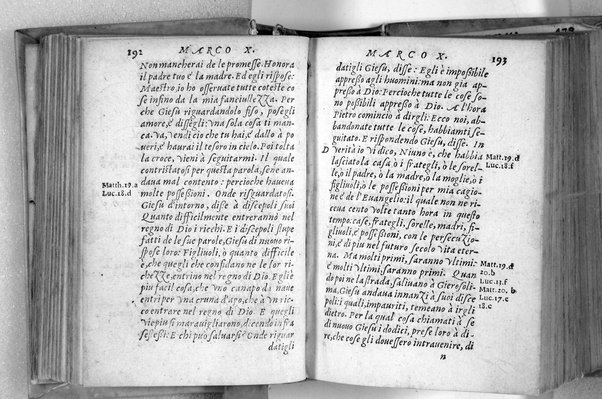 192 MARCO X.
Non mancherai de le promesse. Honora
il padre tuo e la madre. Ed egli rispose:
Maestro, io ho osservate tutte coteste co
se infino da la mia fanciullezza. Per
che Giesu riguardandolo fiso, posegli
amore, e dissegli: una sola cosa ti man-
ca. va, vendi cio che tu hai, e dallo à po
veri, e haurai il tesoro in cielo. Poi tolta
la croce, vieni à seguitarmi. Il quale
contristatosi per questa parola, se ne an
dava mal contento: percioche haueua
Matth. 19. a
molte possessioni. Onde risguardatosi
Luc. 18. d
Giesu d'intorno, disse à discepoli suoi
Quanto difficilmente entreranno nel
regno di Dio i ricchi. E i discepoli stupe
fatti de le sue parole, Giesu di nuouo ri-
spose loro: Figliuoli, ò quanto difficile
è, che quegli che confidano ne le lor ri-
chezze, entrino nel regno di Dio. Egli è
piu facil cosa, che uno canapo di naue
entri per una cruna d'apo, che à un ric-
co entrare nel regno di Dio. E quegli
vie piu si marauigliarono, dicendo infra
se stessi: E chi può saluarsi? Onde riguar
datigli
MARCO X. 193
datigli Giesu, disse: Egli è impossibile
appresso agli huomini: ma non già ap-
presso à Dio: Percioche tutte le cose so-
no possibili appresso à Dio. A l'hora
Pietro comincio à dirgli: Ecco noi, ab-
bandonate tutte le cose, habbiamti se-
guitato. E rispondendo Giesu, disse. In
D verità io vi dico, Niuno è, che habbia
Matt. 19. d
lasciato la casa ò i frategli, ò le sorel-
Luc. 18. f
le, ò il padre, ò la madre, ò la moglie, ò i
figliuoli, ò le possessioni per mia cagio-
ne, e de l'Euangelio: il quale non ne ri-
ceua cento volte tanto hora in questo
tempo: case, frategli, sorelle, madri, fi-
gliuoli, e possessioni, con le persecuzio-
ni, e di piu nel futuro secolo vita eter-
na. Ma molti primi, saranno vltimi:
Matt. 19. d
e molti vltimi, saranno primi. Quan
20. b
do poi ne la strada, saliuano à Gierosoli-
Luc. 13. f
ma, Giesu andaua innanzi à suoi disce
Matt. 20. b
poli: i quali, impauriti, temeano à irgli
Luc. 17. c
18. c
dietro. Per la qual cosa chiamati à se
di nuouo Giesu i dodici, prese loro à di-
re, che cose gli douessero intrauenire, di
n